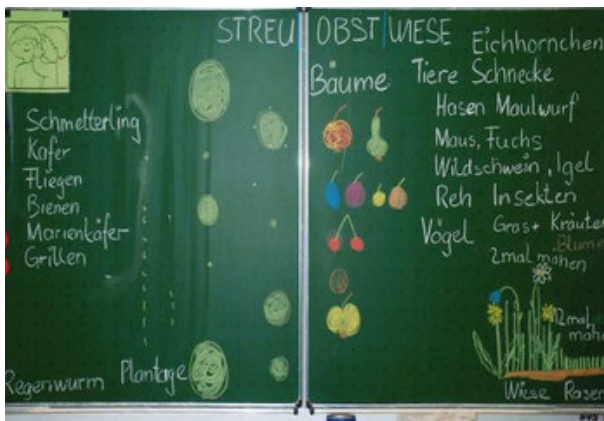 STREU OBST WIESE
Schmetterling
Käfer
Fliegen
Bienen
Marienkäfer
Grillen
Regenwurm Plantage
Bäume
Eichhörnchen
Tiere Schnecke
Hasen Maulwurf
Maus, Fuchs
Wildschwein, Igel
Reh Insekten
Vögel
Gras+ Kräuter
Blume
2mal mähen
12mal
mähe
Wiese Rasen